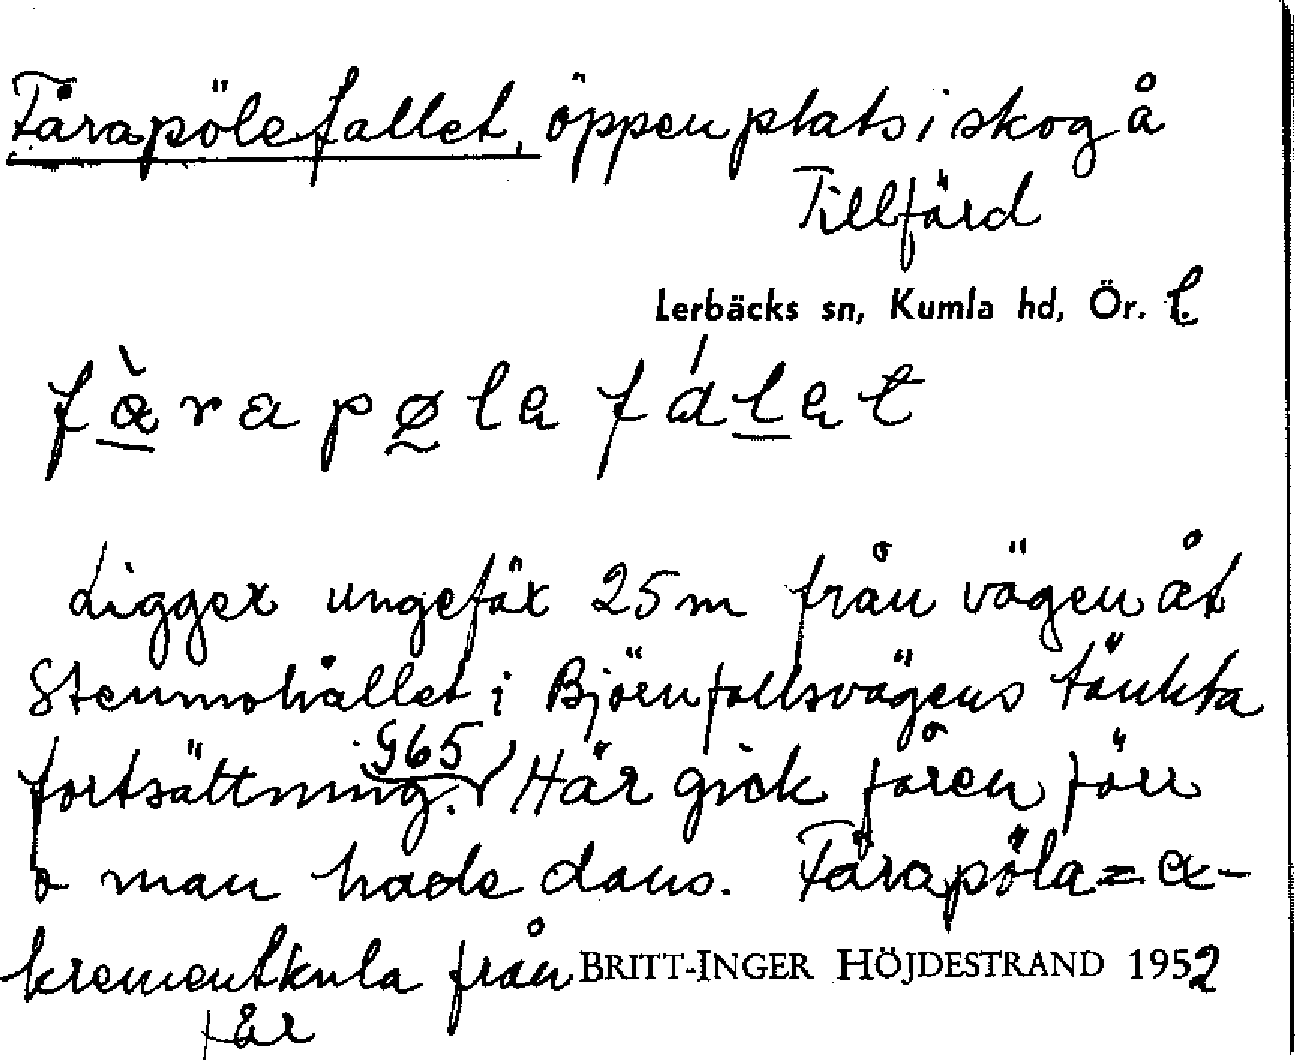 Fårapölefallet, öppen plats i skog å
Tillfärd
Lerbäcks sn, Kumla hd, Ör. l.
fæ̀rapøle fálet
Ligger ungefär 25 m från vägen åt
Stenmohållet i Björnfallsvägens tänkta
fortsättning. 965 Här gick fåren förr
o man hade dans. Fårapöla = ex-
krementkula från
får
BRITT-INGER HÖJDESTRAND 1952